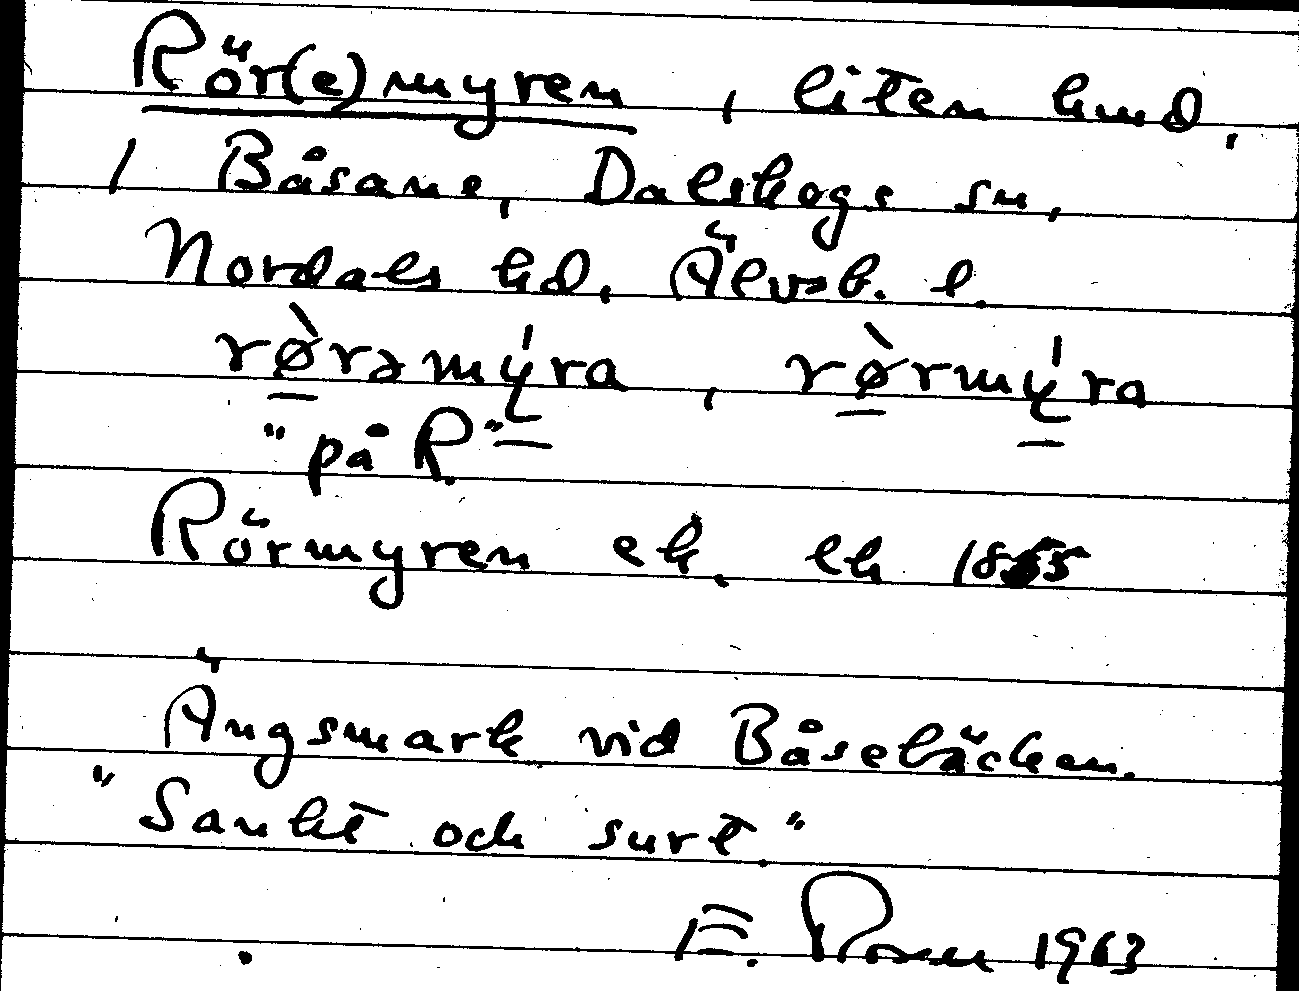 Rör(e)myren, liten hmd,
1 Båsane, Dalskogs sn,
Nordals hd. Älvsb. l.
rø̀rəmýra, rø̀rmýra
"på R."
Rörmyren ek. lk 1865
Ängsmark vid Båsebäcken.
"Sankt och surt."
E. Rosen 1963